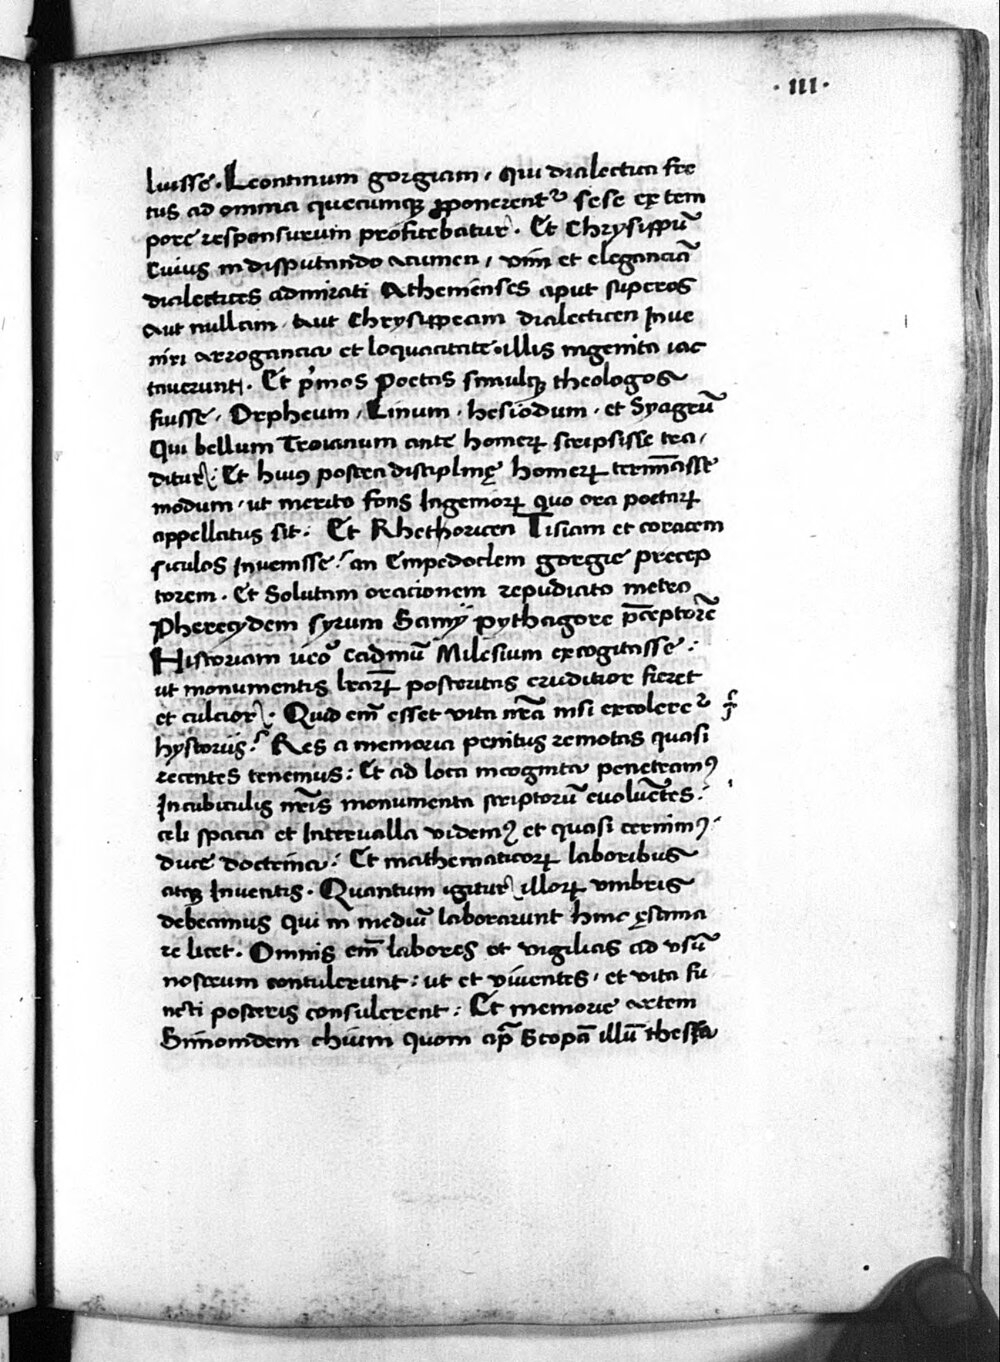 · III ·
luisse · Leontinum gorgiam / Qui dialectica fre
tus ad omnia quecumqꝫ ꝓponerent᷑ sese ex tem
pore responsurum profitebatur · Et Chrysippū
Cuius in disputando acumen / vim et eleganciā
dialectices admirati Athenienses aput superos
Aut nullam · Aut Chrysippeam dialecticen Inue
niri arrogancia et loquacitate · illis ingenita iac
tauerunt · Et pͥmos Poetas simulqꝫ theologos
fuisse / Orpheum / Linum · hesiodum · et Syagrū
Qui bellum Troianum ante homerꝝ scripsisse tra /
ditur : Et huiꝰ postea disciplinę homerꝝ terminasse
modum / ut merito fons Ingeniorꝝ quo ora poetarꝝ
appellatus sit : Et Rhethoricen Tisiam et coracem
siculos Inuenisse / an Empedoclem gorgie precep
torem · Et Solutam oracionem repudiato metro
Pherecydem syrum Samÿ pythagore p̄ceptorē
Historiam ueͦ Cadmū Milesium excogitasse :
ut monumentis lrarꝝ posteritas eruditior fieret
et culcior : Quid em̄ esset vita nr̄a nisi excolere᷑
hystoriis : Res a memoria penitus remotas quasi
recentes tenemus : Et ad loca incognita penetramꝰ
In cubiculis nr̄is monumenta scriptorū euoluētes :
celi spacia et Interualla videmꝰ et quasi cernimꝰ :
duce doctrina : Et mathematicorꝝ laboribus
atqꝫ Inuentis · Quantum igitur illorꝝ vmbris
debeamus Qui in mediū laborarunt hinc ęstima
re licet · Omnis em̄ labores et vigilias ad vsū
nostrum contulerunt : ut et viuentes / et vita fu
ncti posteris consulerent : Et memorie artem
Simonidem chium quom ap̄ Scopā illū thessa